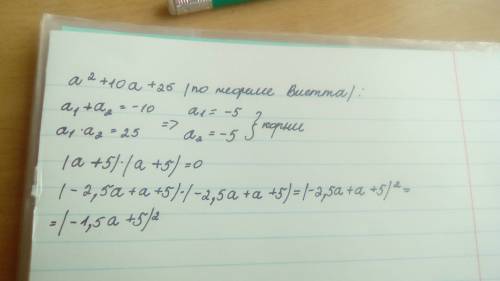 a² + 10a + 25 (по теореме Виетта):
a₁ + a₂ = -10 a₁ = -5
a₁ · a₂ = 25 => a₂ = -5 } корни
(a + 5) · (a + 5) = 0
(-2,5a + a + 5) · (-2,5a + a + 5) = (-2,5a + a + 5)² =
= (-1,5a + 5)²